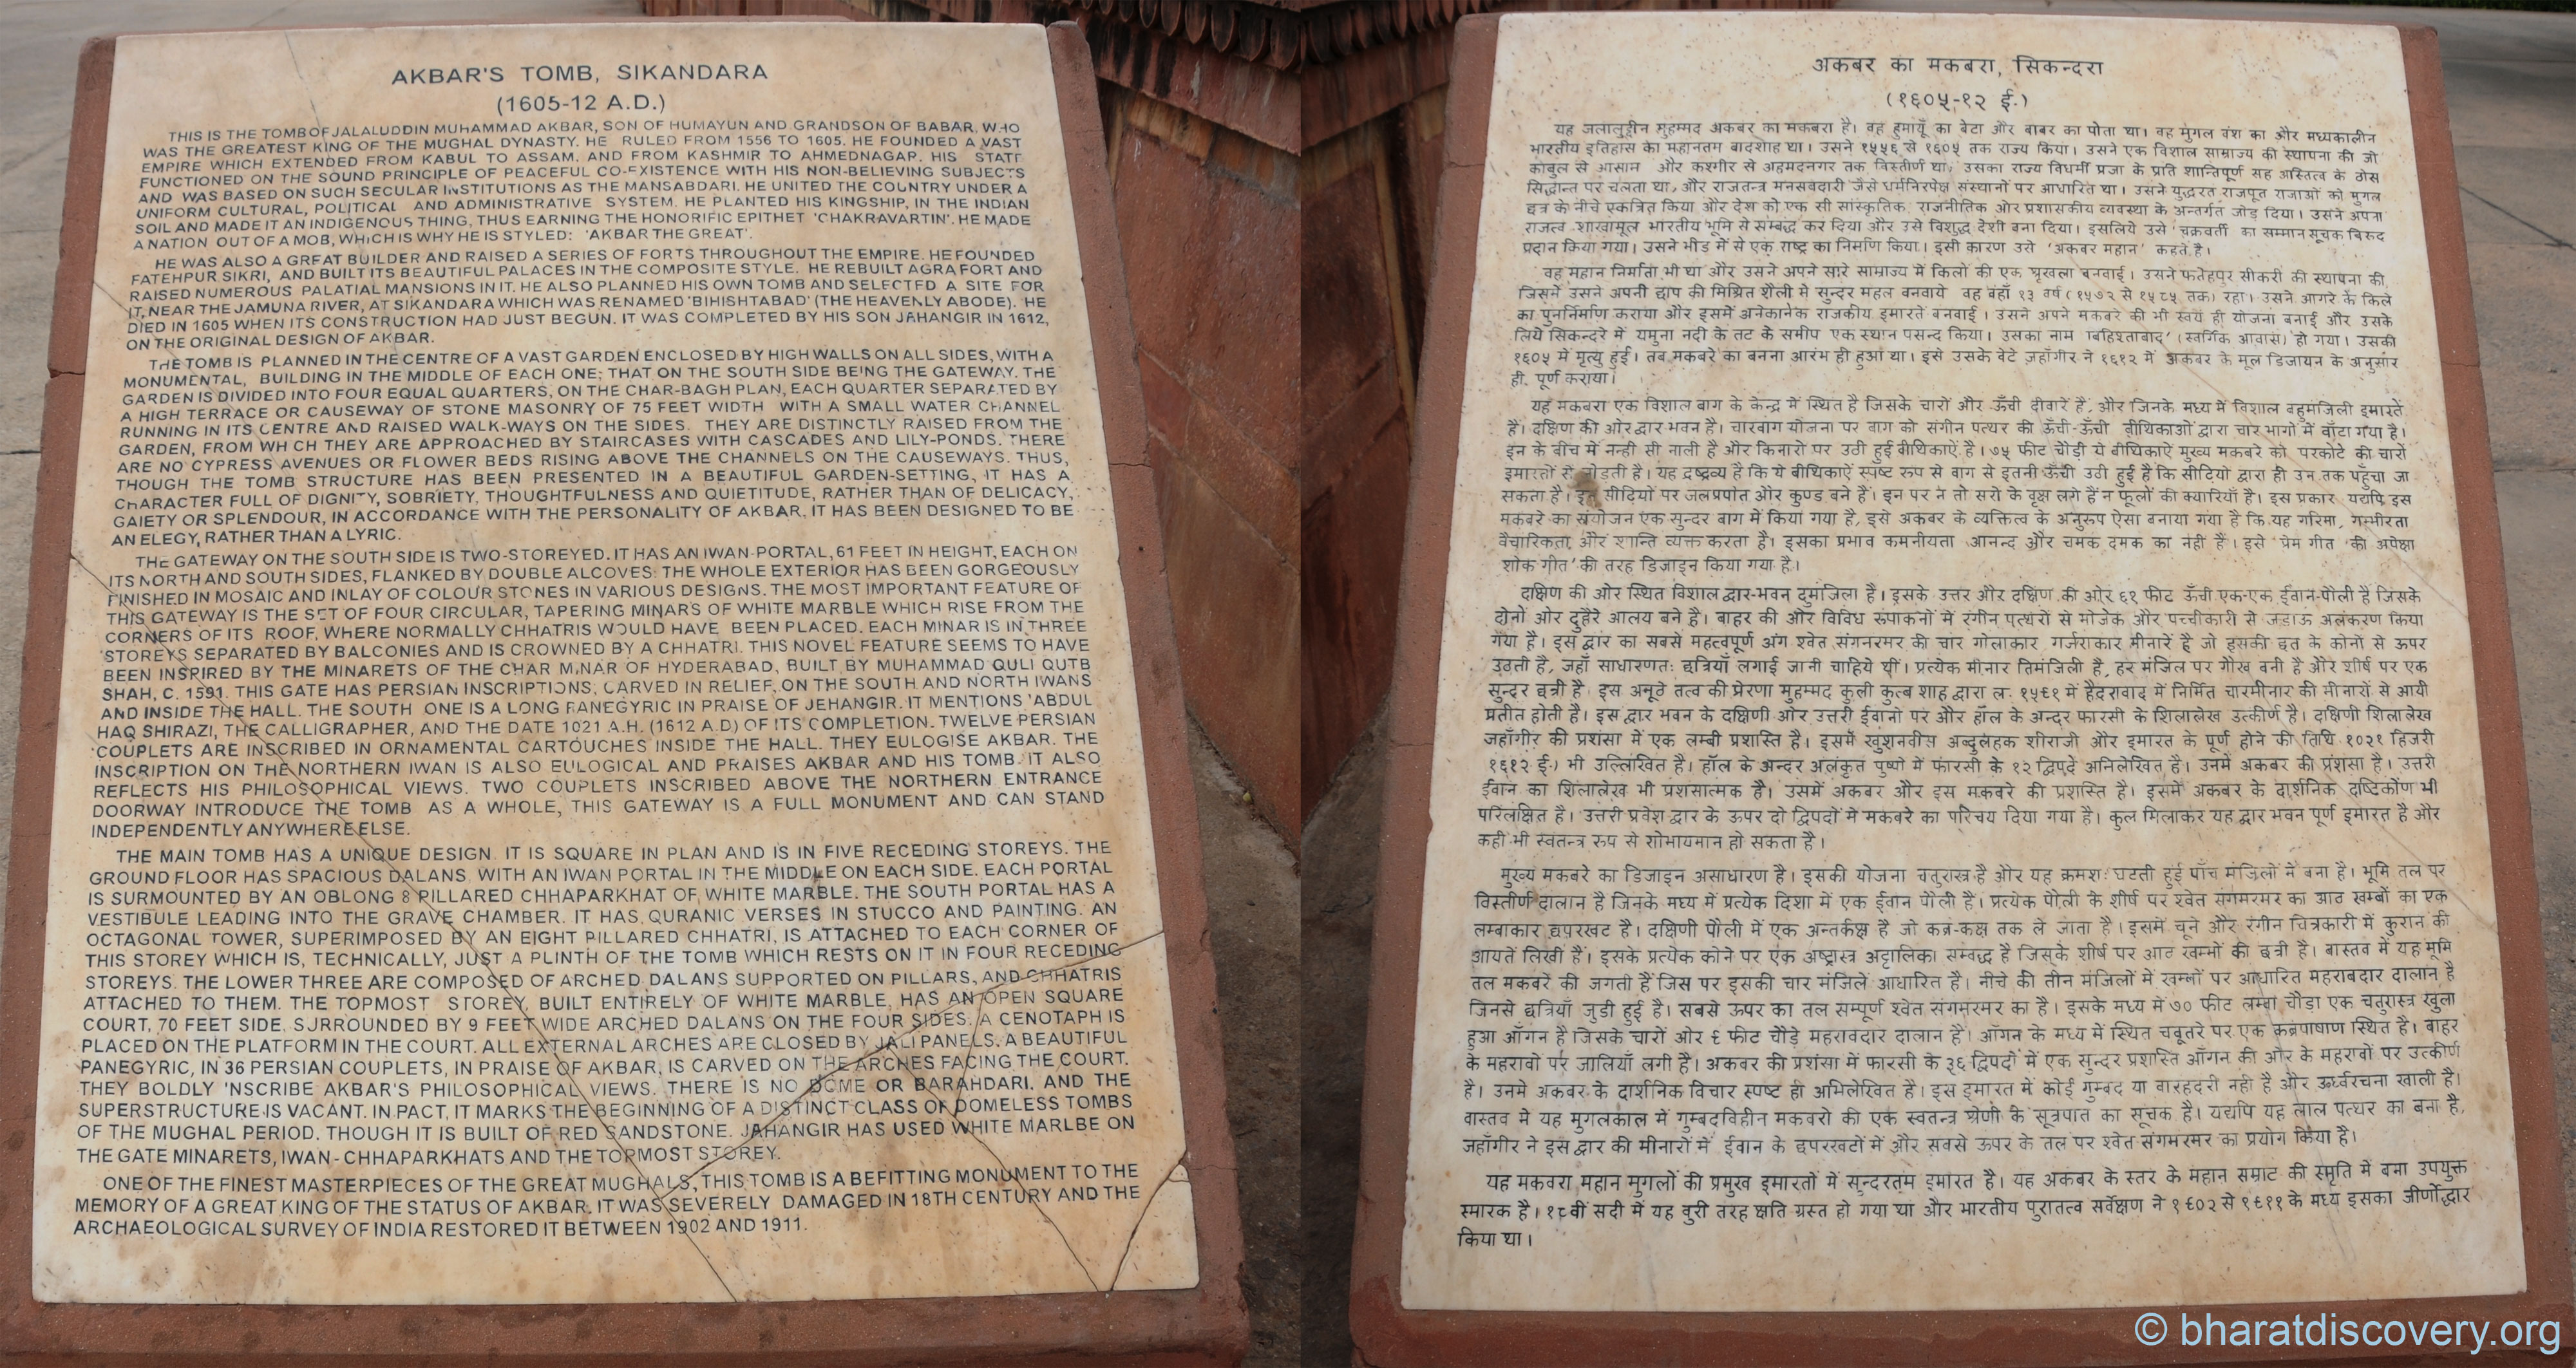 AKBAR'S TOMB, SIKANDARA
(1605-12 A.D.)
THIS IS THE TOMB OF JALALUDDIN MUHAMMAD AKBAR, SON OF HUMAYUN AND GRANDSON OF BABAR, WHO
WAS THE GREATEST KING OF THE MUGHAL DYNASTY. HE RULED FROM 1556 TO 1605. HE FOUNDED A VAST
EMPIRE WHICH EXTENDED FROM KABUL TO ASSAM. AND FROM KASHMIR TO AHMEDNAGAR. HIS STATE
FUNCTIONED ON THE SOUND PRINCIPLE OF PEACEFUL CO-EXISTENCE WITH HIS NON-BELIEVING SUBJECTS
AND WAS BASED ON SUCH SECULAR INSTITUTIONS AS THE MANSABDARI. HE UNITED THE COUNTRY UNDER A
UNIFORM CULTURAL, POLITICAL AND ADMINISTRATIVE SYSTEM. HE PLANTED HIS KINGSHIP, IN THE INDIAN
SOIL AND MADE IT AN INDIGENOUS THING, THUS EARNING THE HONORIFIC EPITHET 'CHAKRAVARTIN'. HE MADE
A NATION OUT OF A MOB, WHICH IS WHY HE IS STYLED: 'AKBAR THE GREAT'.
HE WAS ALSO A GREAT BUILDER AND RAISED A SERIES OF FORTS THROUGHOUT THE EMPIRE. HE FOUNDED
FATEHPUR SIKRI, AND BUILT ITS BEAUTIFUL PALACES IN THE COMPOSITE STYLE. HE REBUILT AGRA FORT AND
RAISED NUMEROUS PALATIAL MANSIONS IN IT. HE ALSO PLANNED HIS OWN TOMB AND SELECTED A SITE FOR
IT, NEAR THE JAMUNA RIVER, AT SIKANDARA WHICH WAS RENAMED 'BIHISHTABAD' (THE HEAVENLY ABODE). HE
DIED IN 1605 WHEN ITS CONSTRUCTION HAD JUST BEGUN. IT WAS COMPLETED BY HIS SON JAHANGIR IN 1612,
ON THE ORIGINAL DESIGN OF AKBAR.
THE TOMB IS PLANNED IN THE CENTRE OF A VAST GARDEN ENCLOSED BY HIGH WALLS ON ALL SIDES, WITH A
MONUMENTAL, BUILDING IN THE MIDDLE OF EACH ONE; THAT ON THE SOUTH SIDE BEING THE GATEWAY. THE
GARDEN IS DIVIDED INTO FOUR EQUAL QUARTERS, ON THE CHAR-BAGH PLAN, EACH QUARTER SEPARATED BY
A HIGH TERRACE OR CAUSEWAY OF STONE MASONRY OF 75 FEET WIDTH WITH A SMALL WATER CHANNEL
RUNNING IN ITS CENTRE AND RAISED WALK-WAYS ON THE SIDES. THEY ARE DISTINCTLY RAISED FROM THE
GARDEN, FROM WHICH THEY ARE APPROACHED BY STAIRCASES WITH CASCADES AND LILY-PONDS. THERE
ARE NO CYPRESS AVENUES OR FLOWER BEDS RISING ABOVE THE CHANNELS ON THE CAUSEWAYS. THUS,
THOUGH THE TOMB STRUCTURE HAS BEEN PRESENTED IN A BEAUTIFUL GARDEN-SETTING, IT HAS A
CHARACTER FULL OF DIGNITY, SOBRIETY, THOUGHTFULNESS AND QUIETITUDE, RATHER THAN OF DELICACY,
GAIETY OR SPLENDOUR, IN ACCORDANCE WITH THE PERSONALITY OF AKBAR. IT HAS BEEN DESIGNED TO BE
AN ELEGY, RATHER THAN A LYRIC.
THE GATEWAY ON THE SOUTH SIDE IS TWO-STOREYED. IT HAS AN IWAN-PORTAL, 61 FEET IN HEIGHT, EACH ON
ITS NORTH AND SOUTH SIDES, FLANKED BY DOUBLE ALCOVES: THE WHOLE EXTERIOR HAS BEEN GORGEOUSLY
FINISHED IN MOSAIC AND INLAY OF COLOUR STONES IN VARIOUS DESIGNS. THE MOST IMPORTANT FEATURE OF
THIS GATEWAY IS THE SET OF FOUR CIRCULAR, TAPERING MINARS OF WHITE MARBLE WHICH RISE FROM THE
CORNERS OF ITS ROOF, WHERE NORMALLY CHHATRIS WOULD HAVE BEEN PLACED. EACH MINAR IS IN THREE
STOREYS SEPARATED BY BALCONIES AND IS CROWNED BY A CHHATRI. THIS NOVEL FEATURE SEEMS TO HAVE
BEEN INSPIRED BY THE MINARETS OF THE CHAR MINAR OF HYDERABAD, BUILT BY MUHAMMAD QULI QUTB
SHAH, C. 1591. THIS GATE HAS PERSIAN INSCRIPTIONS, CARVED IN RELIEF, ON THE SOUTH AND NORTH IWANS
AND INSIDE THE HALL. THE SOUTH ONE IS A LONG PANEGYRIC IN PRAISE OF JEHANGIR. IT MENTIONS 'ABDUL
HAQ SHIRAZI, THE CALLIGRAPHER, AND THE DATE 1021 A.H. (1612 A.D) OF ITS COMPLETION. TWELVE PERSIAN
COUPLETS ARE INSCRIBED IN ORNAMENTAL CARTOUCHES INSIDE THE HALL. THEY EULOGISE AKBAR. THE
INSCRIPTION ON THE NORTHERN IWAN IS ALSO EULOGICAL AND PRAISES AKBAR AND HIS TOMB. IT ALSO
REFLECTS HIS PHILOSOPHICAL VIEWS. TWO COUPLETS INSCRIBED ABOVE THE NORTHERN ENTRANCE
DOORWAY INTRODUCE THE TOMB AS A WHOLE, THIS GATEWAY IS A FULL MONUMENT AND CAN STAND
INDEPENDENTLY ANYWHERE ELSE.
THE MAIN TOMB HAS A UNIQUE DESIGN. IT IS SQUARE IN PLAN AND IS IN FIVE RECEDING STOREYS. THE
GROUND FLOOR HAS SPACIOUS DALANS, WITH AN IWAN PORTAL IN THE MIDDLE ON EACH SIDE. EACH PORTAL
IS SURMOUNTED BY AN OBLONG 8 PILLARED CHHAPARKHAT OF WHITE MARBLE. THE SOUTH PORTAL HAS A
VESTIBULE LEADING INTO THE GRAVE CHAMBER. IT HAS QURANIC VERSES IN STUCCO AND PAINTING. AN
OCTAGONAL TOWER, SUPERIMPOSED BY AN EIGHT PILLARED CHHATRI, IS ATTACHED TO EACH CORNER OF
THIS STOREY WHICH IS, TECHNICALLY, JUST A PLINTH OF THE TOMB WHICH RESTS ON IT IN FOUR RECEDING
STOREYS. THE LOWER THREE ARE COMPOSED OF ARCHED DALANS SUPPORTED ON PILLARS, AND CHHATRIS
ATTACHED TO THEM. THE TOPMOST STOREY, BUILT ENTIRELY OF WHITE MARBLE, HAS AN OPEN SQUARE
COURT, 70 FEET SIDE, SURROUNDED BY 9 FEET WIDE ARCHED DALANS ON THE FOUR SIDES. A CENOTAPH IS
PLACED ON THE PLATFORM IN THE COURT. ALL EXTERNAL ARCHES ARE CLOSED BY JALI PANELS. A BEAUTIFUL
PANEGYRIC, IN 36 PERSIAN COUPLETS, IN PRAISE OF AKBAR, IS CARVED ON THE ARCHES FACING THE COURT.
THEY BOLDLY 'NSCRIBE AKBAR'S PHILOSOPHICAL VIEWS. THERE IS NO DOME OR BARAHDARI. AND THE
SUPERSTRUCTURE IS VACANT. IN PACT, IT MARKS THE BEGINNING OF A DISTINCT CLASS OF DOMELESS TOMBS
OF THE MUGHAL PERIOD. THOUGH IT IS BUILT OF RED SANDSTONE. JAHANGIR HAS USED WHITE MARLBE ON
THE GATE MINARETS, IWAN-CHHAPARKHATS AND THE TOPMOST STOREY.
ONE OF THE FINEST MASTERPIECES OF THE GREAT MUGHALS, THIS TOMB IS A BEFITTING MONUMENT TO THE
MEMORY OF A GREAT KING OF THE STATUS OF AKBAR. IT WAS SEVERELY DAMAGED IN 18TH CENTURY AND THE
ARCHAEOLOGICAL SURVEY OF INDIA RESTORED IT BETWEEN 1902 AND 1911.
अकबर का मकबरा, सिकन्दरा
(१६०५-१२ ई.)
यह जलालुद्दीन मुहम्मद अकबर का मकबरा है। वह हुमायूँ का बेटा और बाबर का पोता था। वह मुगल वंश का और मध्यकालीन
भारतीय इतिहास का महानतम बादशाह था। उसने १५५६ से १६०५ तक राज्य किया। उसने एक विशाल साम्राज्य की स्थापना की जो
काबुल से आसाम और कश्मीर से अहमदनगर तक विस्तीर्ण था। उसका राज्य विधर्मी प्रजा के प्रति शान्तिपूर्ण सह अस्तित्व के ठोस
सिद्धान्त पर चलता था, और राजतन्त्र मनसबदारी जैसे धर्मनिरपेक्ष संस्थानों पर आधारित था। उसने युद्धरत राजपूत राजाओं को मुगल
छत्र के नीचे एकत्रित किया और देश को एक सी सांस्कृतिक राजनीतिक ओर प्रशासकीय व्यवस्था के अन्तर्गत जोड़ दिया। उसने अपना
राजत्व शाखामूल भारतीय भूमि से सम्बद्ध कर दिया और उसे विशुद्ध देशी बना दिया। इसलिये उसे 'चक्रवर्ती' का सम्मान सूचक बिरुद
प्रदान किया गया। उसने भीड़ में से एक राष्ट्र का निर्माण किया। इसी कारण उसे 'अकबर महान' कहते है।
वह महान निर्माता भी था और उसने अपने सारे साम्राज्य में किलों की एक श्रृखला बनवाई। उसने फतेहपुर सीकरी की स्थापना की,
जिसमें उसने अपनी छाप की मिश्रित शैली मे सुन्दर महल बनवाये वह वहाँ १३ वर्ष (१५७२ से १५८५ तक) रहा। उसने आगरे के किले
का पुनर्निर्माण कराया और इसमें अनेकानेक राजकीय इमारतें बनवाई। उसने अपने मकबरे की भी स्वयं ही योजना बनाई और उसके
लिये सिकन्दरे में यमुना नदी के तट के समीप एक स्थान पसन्द किया। उसका नाम 'बिहिश्ताबाद' (स्वर्गिक आवास) हो गया। उसकी
१६०५ में मृत्यु हुई। तब मकबरे का बनना आरंभ ही हुआ था। इसे उसके बेटे जहाँगीर ने १६१२ में अकबर के मूल डिजायन के अनुसार
ही पूर्ण कराया।
यह मकबरा एक विशाल बाग के केन्द्र में स्थित है जिसके चारों और ऊँची दीवारें है, और जिनके मध्य में विशाल बहुमंजिली इमारतें
है। दक्षिण की ओर द्वार भवन है। चारबाग योजना पर बाग को संगीन पत्थर की ऊँची-ऊँची बीथिकाओं द्वारा चार भागो में बाँटा गया है।
इन के बीच में नन्ही सी नाली है और किनारो पर उठी हुई बीथिकाऐं है। ७५ फीट चौड़ी ये बीथिकाऐं मुख्य मकबरे को परकोटे की चारों
इमारतों से जोड़ती है। यह द्रष्टव्य है कि ये बीथिकाऐं स्पष्ट रुप से बाग से इतनी ऊँची उठी हुई है कि सीढियो द्वारा ही उन तक पहुँचा जा
सकता है। इन सीढियों पर जलप्रपात और कुण्ड बने हैं। इन पर न तो सरो के वृक्ष लगे हैं न फूलों की क्यारियाँ है। इस प्रकार यद्यपि इस
मकबरे का संयोजन एक सुन्दर बाग में किया गया है, इसे अकबर के व्यक्तित्व के अनुरुप ऐसा बनाया गया है कि यह गरिमा, गम्भीरता
वैचारिकता और शान्ति व्यक्त करता है। इसका प्रभाव कमनीयता आनन्द और चमक दमक का नहीं है। इसे 'प्रेम गीत' की अपेक्षा
'शोक गीत' की तरह डिज़ाइन किया गया है।
दक्षिण की ओर स्थित विशाल द्वार-भवन दुमंजिला है। इसके उत्तर और दक्षिण की ओर ६१ फीट ऊँची एक-एक ईवान-पौली है जिसके
दोनो ओर दुहेरे आलय बने है। बाहर की और विविध रुपाकनों में रंगीन पत्थरों से मोजेक और पच्चीकारी से जड़ाऊ अलंकरण किया
गया है। इस द्वार का सबसे महत्वपूर्ण अंग श्वेत संगमरमर की चार गोलाकार गर्जराकार मीनारें है जो इसकी छत के कोनों से ऊपर
उठती है, जहाँ साधारणतः छत्रियाँ लगाई जानी चाहिये थीं। प्रत्येक मीनार तिमंजिली है, हर मंजिल पर गौख बनी है और शीर्ष पर एक
सुन्दर छत्री है। इस अनूठे तत्व की प्रेरणा मुहम्मद कुली कुत्ब शाह द्वारा ल. १५९१ में हैदराबाद में निर्मित चारमीनार की मीनारों से आयी
प्रतीत होती है। इस द्वार भवन के दक्षिणी ओर उत्तरी ईवानो पर और हॉल के अन्दर फारसी के शिलालेख उत्कीर्ण है। दक्षिणी शिलालेख
जहाँगीर की प्रशंसा में एक लम्बी प्रशस्ति है। इसमें खुशनवीस अब्दुलहक शीराजी और इमारत के पूर्ण होने की तिथि १०२१ हिजरी
१६१२ ई.) भी उल्लिखित है। हॉल के अन्दर अलंकृत पुष्पो में फारसी के १२ द्विपदे अभिलेखित है। उनमें अकबर की प्रशंसा है। उत्तरी
ईवान का शिलालेख भी प्रशंसात्मक है। उसमें अकबर और इस मकबरे की प्रशस्ति है। इसमें अकबर के दार्शनिक दृष्टिकोण भी
परिलक्षित है। उत्तरी प्रवेश द्वार के ऊपर दो द्विपदों में मकबरे का परिचय दिया गया है। कुल मिलाकर यह द्वार भवन पूर्ण इमारत है और
कही भी स्वतन्त्र रुप से शोभायमान हो सकता है।
मुख्य मकबरे का डिजाइन असाधारण है। इसकी योजना चतुरास्त्र है और यह क्रमशः घटती हुई पाँच मंजिलों में बना है। भूमि तल पर
विस्तीर्ण दालान है जिनके मध्य में प्रत्येक दिशा में एक ईवान पौली है। प्रत्येक पोली के शीर्ष पर श्वेत संगमरमर का आठ खम्बों का एक
लम्बाकार छपरखट है। दक्षिणी पौली में एक अन्तर्कक्ष है जो कब्र-कक्ष तक ले जाता है। इसमें चूने और रंगीन चित्रकारी में कुरान की
आयतें लिखी हैं। इसके प्रत्येक कोने पर एक अष्टास्त्र अट्टालिका सम्बद्ध है जिसके शीर्ष पर आठ खम्भों की छत्री है। वास्तव में यह भूमि
तल मकबरे की जगती है जिस पर इसकी चार मंजिलें आधारित है। नीचे की तीन मंजिलों में खम्भों पर आधारित महराबदार दालान है
जिनसे छत्रियाँ जुड़ी हुई है। सबसे ऊपर का तल सम्पूर्ण श्वेत संगमरमर का है। इसके मध्य में ७० फीट लम्बा चौड़ा एक चतुरास्त्र खुला
हुआ आँगन है जिसके चारों ओर ९ फीट चौड़े महरावदार दालान है। आँगन के मध्य में स्थित चबूतरे पर एक कब्रपाषाण स्थित है। बाहर
के महरावों पर जालियाँ लगी है। अकबर की प्रशंसा में फारसी के ३६ द्विपदों में एक सुन्दर प्रशस्ति आँगन की ओर के महरावों पर उत्कीर्ण
है। उनमे अकबर के दार्शनिक विचार स्पष्ट ही अभिलेखित है। इस इमारत में कोई गुम्बद या बारहदरी नही है और ऊर्ध्वरचना खाली है।
वास्तव मे यह मुगलकाल में गुम्बदविहीन मकबरो की एक स्वतन्त्र श्रेणी के सूत्रपात का सूचक है। यद्यपि यह लाल पत्थर का बना है,
जहाँगीर ने इस द्वार की मीनारों में ईवान के छपरखटों में और सबसे ऊपर के तल पर श्वेत संगमरमर का प्रयोग किया है।
यह मकबरा महान मुगलों की प्रमुख इमारतों में सुन्दरतम इमारत है। यह अकबर के स्तर के महान सम्राट की स्मृति में बना उपयुक्त
स्मारक है। १८वीं सदी में यह बुरी तरह क्षति ग्रस्त हो गया था और भारतीय पुरातत्व सर्वेक्षण ने १९०२ से १९११ के मध्य इसका जीर्णोद्धार
किया था।
© bharatdiscovery.org